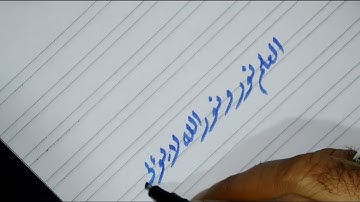 العلم نور و نور الله لا يؤ